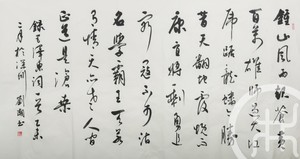 鍾山風雨起蒼黃
百萬雄師過大江
虎踞龍蟠今勝
昔天翻地覆慨而
慷宜將剩勇追
窮寇不可沽
名學霸王天若
有情天亦老人間
正道是滄桑
錄毛澤東詞一首
二月於深圳 劉